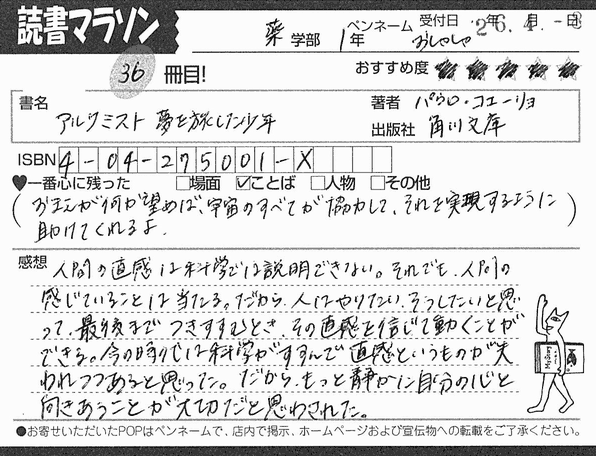 読書マラソン
薬 学部 1年 ペンネーム おしゃしゃ 受付日 年 月 日 26.4.-8
36 冊目! おすすめ度 ★★★★★
書名 アルケミスト 夢を旅した少年
著者 パウロ・コエーリョ
出版社 角川文庫
ISBN 4-04-275001-X
♥一番心に残った □場面 ☑ことば □人物 □その他
(おまえが何か望めば、宇宙のすべてが協力して、それを実現するように
助けてくれるよ)
感想 人間の直感は科学では説明できない。それでも、人間の
感じていることは当たる。だから、人はやりたい、そうしたいと思
って、最後までつきすすむとき、その直感を信じて動くことが
できる。今の時代は科学がすすんで直感というものが失
われつつあると思った。だから、もっと静かに自分の心と
向きあうことが大切だと思わされた。
●お寄せいただいたPOPはペンネームで、店内で掲示、ホームページおよび宣伝物への転載をご了承ください。